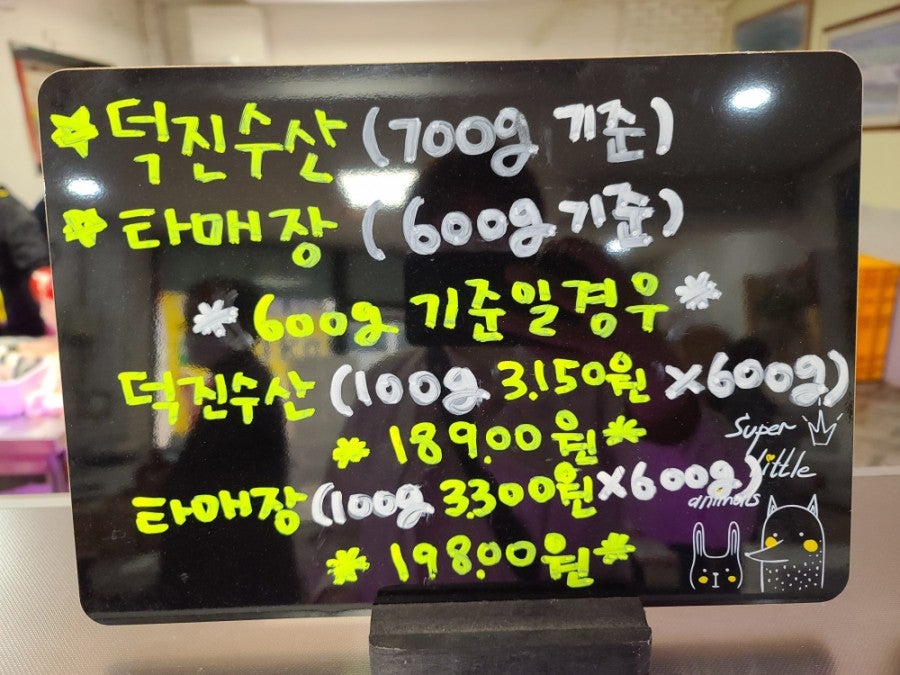 덕진수산 (700g 기준)
타매장 (600g 기준)
* 600g 기준일경우 *
덕진수산 (100g 3.150원 ×600g)
* 18900원 *
타매장 (100g 3300원 ×600g)
* 19800원 *
Super
little
animals